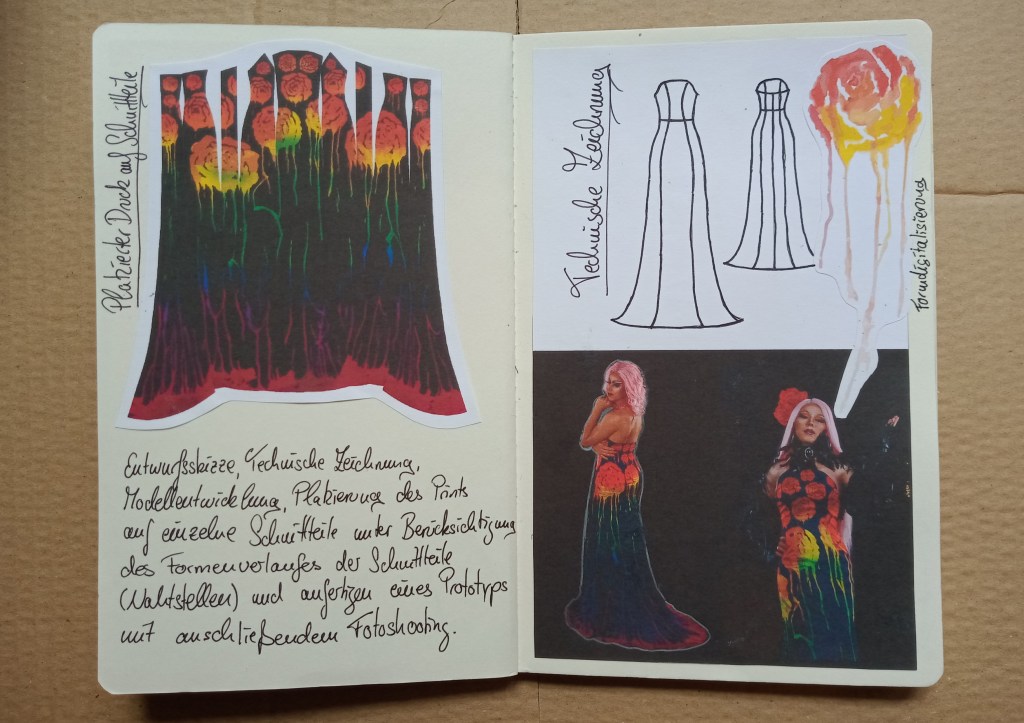 Platzierter Druck auf Schnittteile
Entwurfsskizze, Technische Zeichnung,
Modellentwicklung, Platzierung des Prints
auf einzelne Schnittteile unter Berücksichtigung
des Formenverlaufes der Schnittteile
(Nahtstellen) und anfertigen eines Prototyps
mit anschließendem Fotoshooting.
Technische Zeichnung
Formdigitalisierung